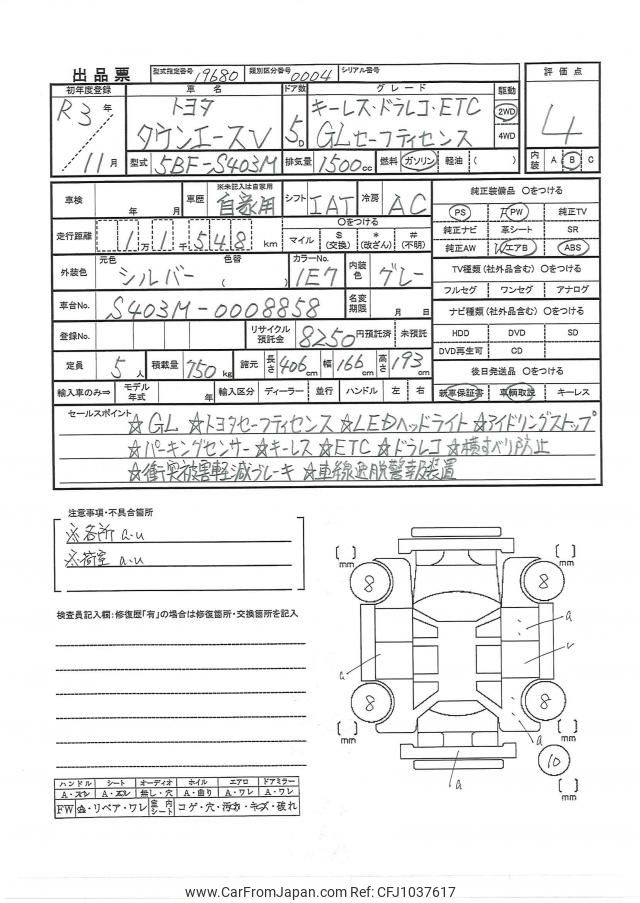 出品票 型式指定番号 19680 類別区分番号 0004 シリアル番号
初年度登録 車名 ドア数 グレード 駆動 評価点
R3年 トヨタ 5D キーレス・ドラレコ・ETC 2WD 4
タウンエースV GLセーフティセンス 4WD
11月 型式 5BF-S403M 排気量 1500cc 燃料 ガソリン 軽油 ( ) 内装 A B C
車検 年 月 車歴 ※未記入は自家用 自家用 シフト IAT 冷房 AC 純正装備品 ○をつける
PS PW 純正TV
走行距離 1万1千548km ○をつける マイル $(交換) *(改ざん) #(不明) 純正ナビ 革シート SR
純正AW エアB ABS
外装色 元色 シルバー 色替 ( ) カラーNo. 1E7 内装色 グレー TV種類(社外品含む) ○をつける
フルセグ ワンセグ アナログ
車台No. S403M-0008858 名変期限 月 日 ナビ種類(社外品含む) ○をつける
登録No. リサイクル預託金 8250円預託済 未預託 HDD DVD SD
DVD再生可 CD
定員 5人 積載量 750kg 諸元 長さ 406cm 幅 166cm 高さ 193cm 後日発送品 ○をつける
輸入車のみ⇒ モデル年式 年 輸入区分 ディーラー 並行 ハンドル 左 右 新車保証書 車輌取説 キーレス
セールスポイント ☆GL ☆トヨタセーフティセンス ☆LEDヘッドライト ☆アイドリングストップ
☆パーキングセンサー ☆キーレス ☆ETC ☆ドラレコ ☆横すべり防止
☆衝突被害軽減ブレーキ ☆車線逸脱警報装置
注意事項・不具合箇所
※各所 a.u
※荷室 a.u
検査員記入欄:修復歴「有」の場合は修復箇所・交換箇所を記入
[ ] mm [ ] mm
8 8
a
a
8 8
[ ] mm [ ] mm
a
a
10
[ ] mm
ハンドル シート オーディオ ホイル エアロ ドアミラー
A・スレ A・スレ 無し・穴 A・曲り A・ワレ A・ワレ
FW リペア・ワレ 室内シート コゲ・穴・汚れ・キズ・破れ
www.CarFromJapan.com Ref: CFJ1037617